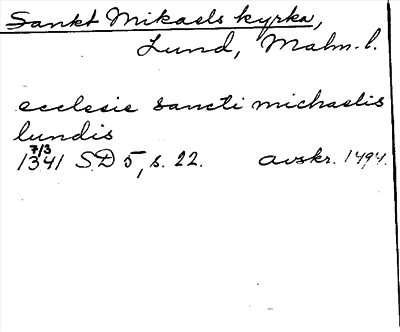 Sankt Mikaels kyrka,
Lund, Malm. l.
ecclesie sancti michaelis
lundis
7/3
1341 SD 5, s. 22. avskr. 1494.